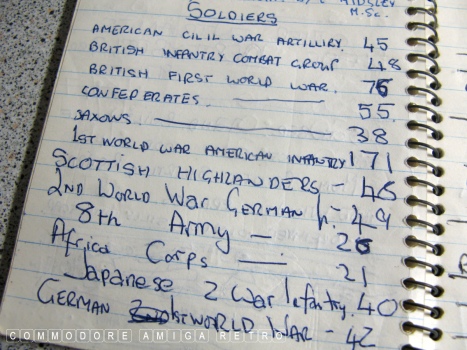 RIDSLEY
M.Sc.
SOLDIERS
AMERICAN CIVIL WAR ARTILLIRY. 45
BRITISH INFANTRY COMBAT GROUP 48
BRITISH FIRST WORLD WAR. 76
CONFEPERATES. 55.
SAXONS. 38
1ST WORLD WAR AMERICAN INFANTRY 171
SCOTTISH HIGHLANDERS - 48
2ND WORLD War GERMAN h - 49
8th Army - 26
Africa Corps - 21
Japanese 2 War Infantry. 40
GERMAN 1ST WORLD WAR - 42
COMMODORE AMIGA RETRO